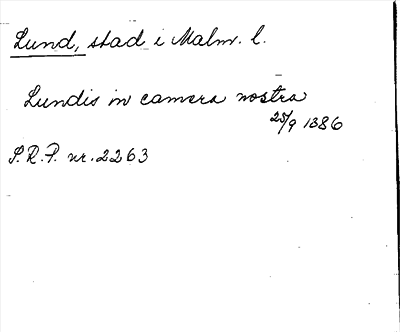 Lund, stad i Malm. l.
Lundis in camera nostra
25/9 1386
S.R.P. nr. 2263